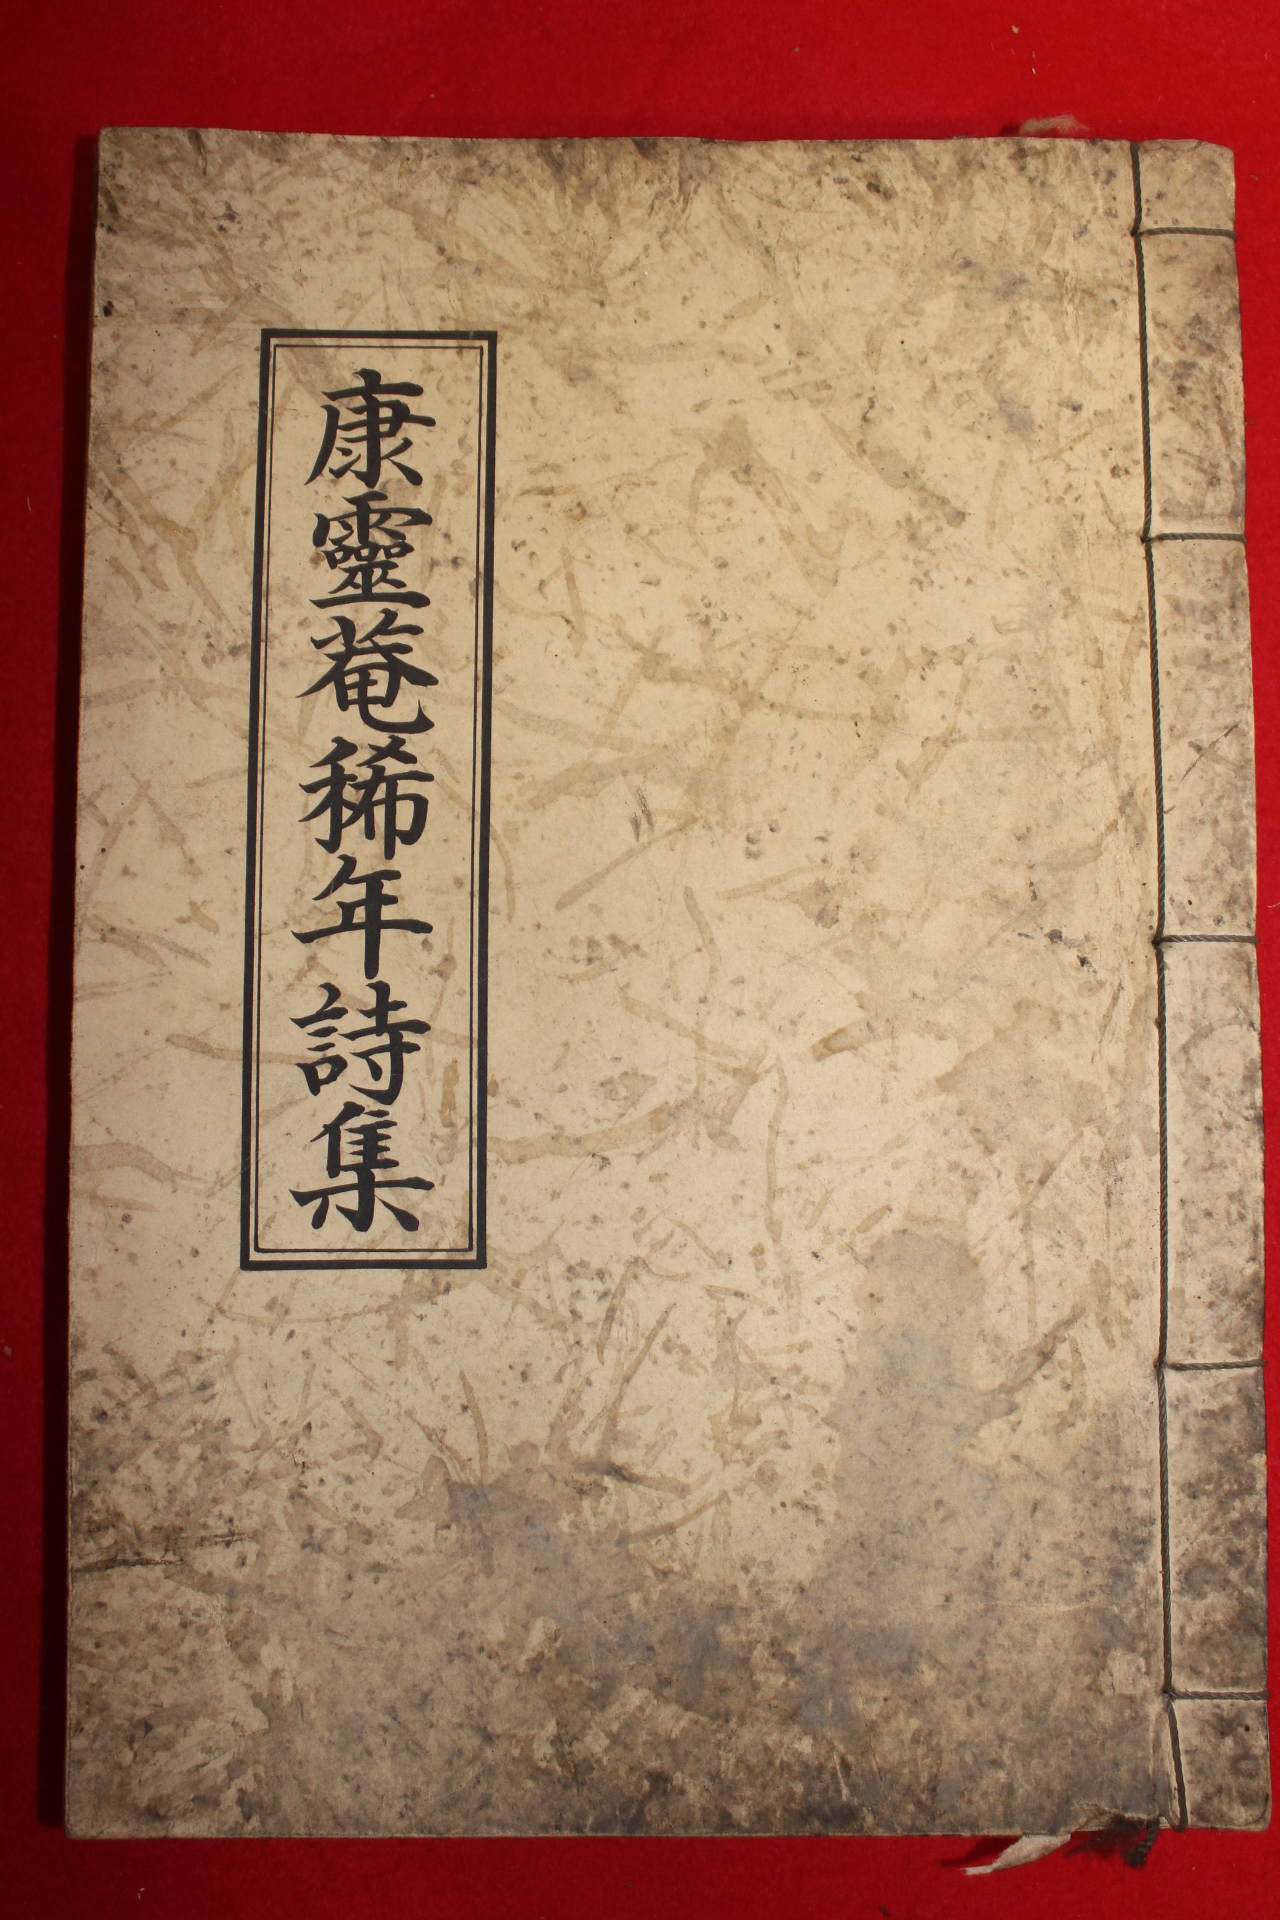 康靈菴稀年詩集